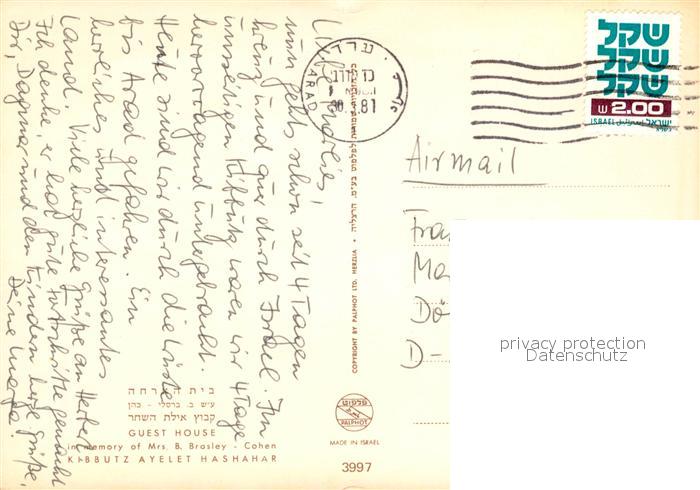 Liebe Marlies!
nun geht's schon seit 4 Tagen
kreuz und quer durch Israel. Im
Kibbutz waren wir 4 Tage
hervorragend untergebracht.
Heute sind wir durch die Wüste
bis Arad gefahren. Ein
herrliches und interessantes
Land. Viele herzliche Grüße an Herbert
Ich denke, er hat gute Fortschritte gemacht
Dir, Dagmar und den Kindern herzl. Grüße,
Deine
ערד
ARAD
81
שקל
שקל
שקל
2.00 ש
ISRAEL ישראל
Airmail
Fra
Ma
Dö
D-
privacy protection
Datenschutz
COPYRIGHT BY PALPHOT LTD. HERZLIA
פלפוט
PALPHOT
MADE IN ISRAEL
3997
בית הארחה
ע״ש ב. ברסלי - כהן
קבוץ אילת השחר
GUEST HOUSE
in memory of Mrs. B. Brasley - Cohen
KIBBUTZ AYELET HASHAHAR